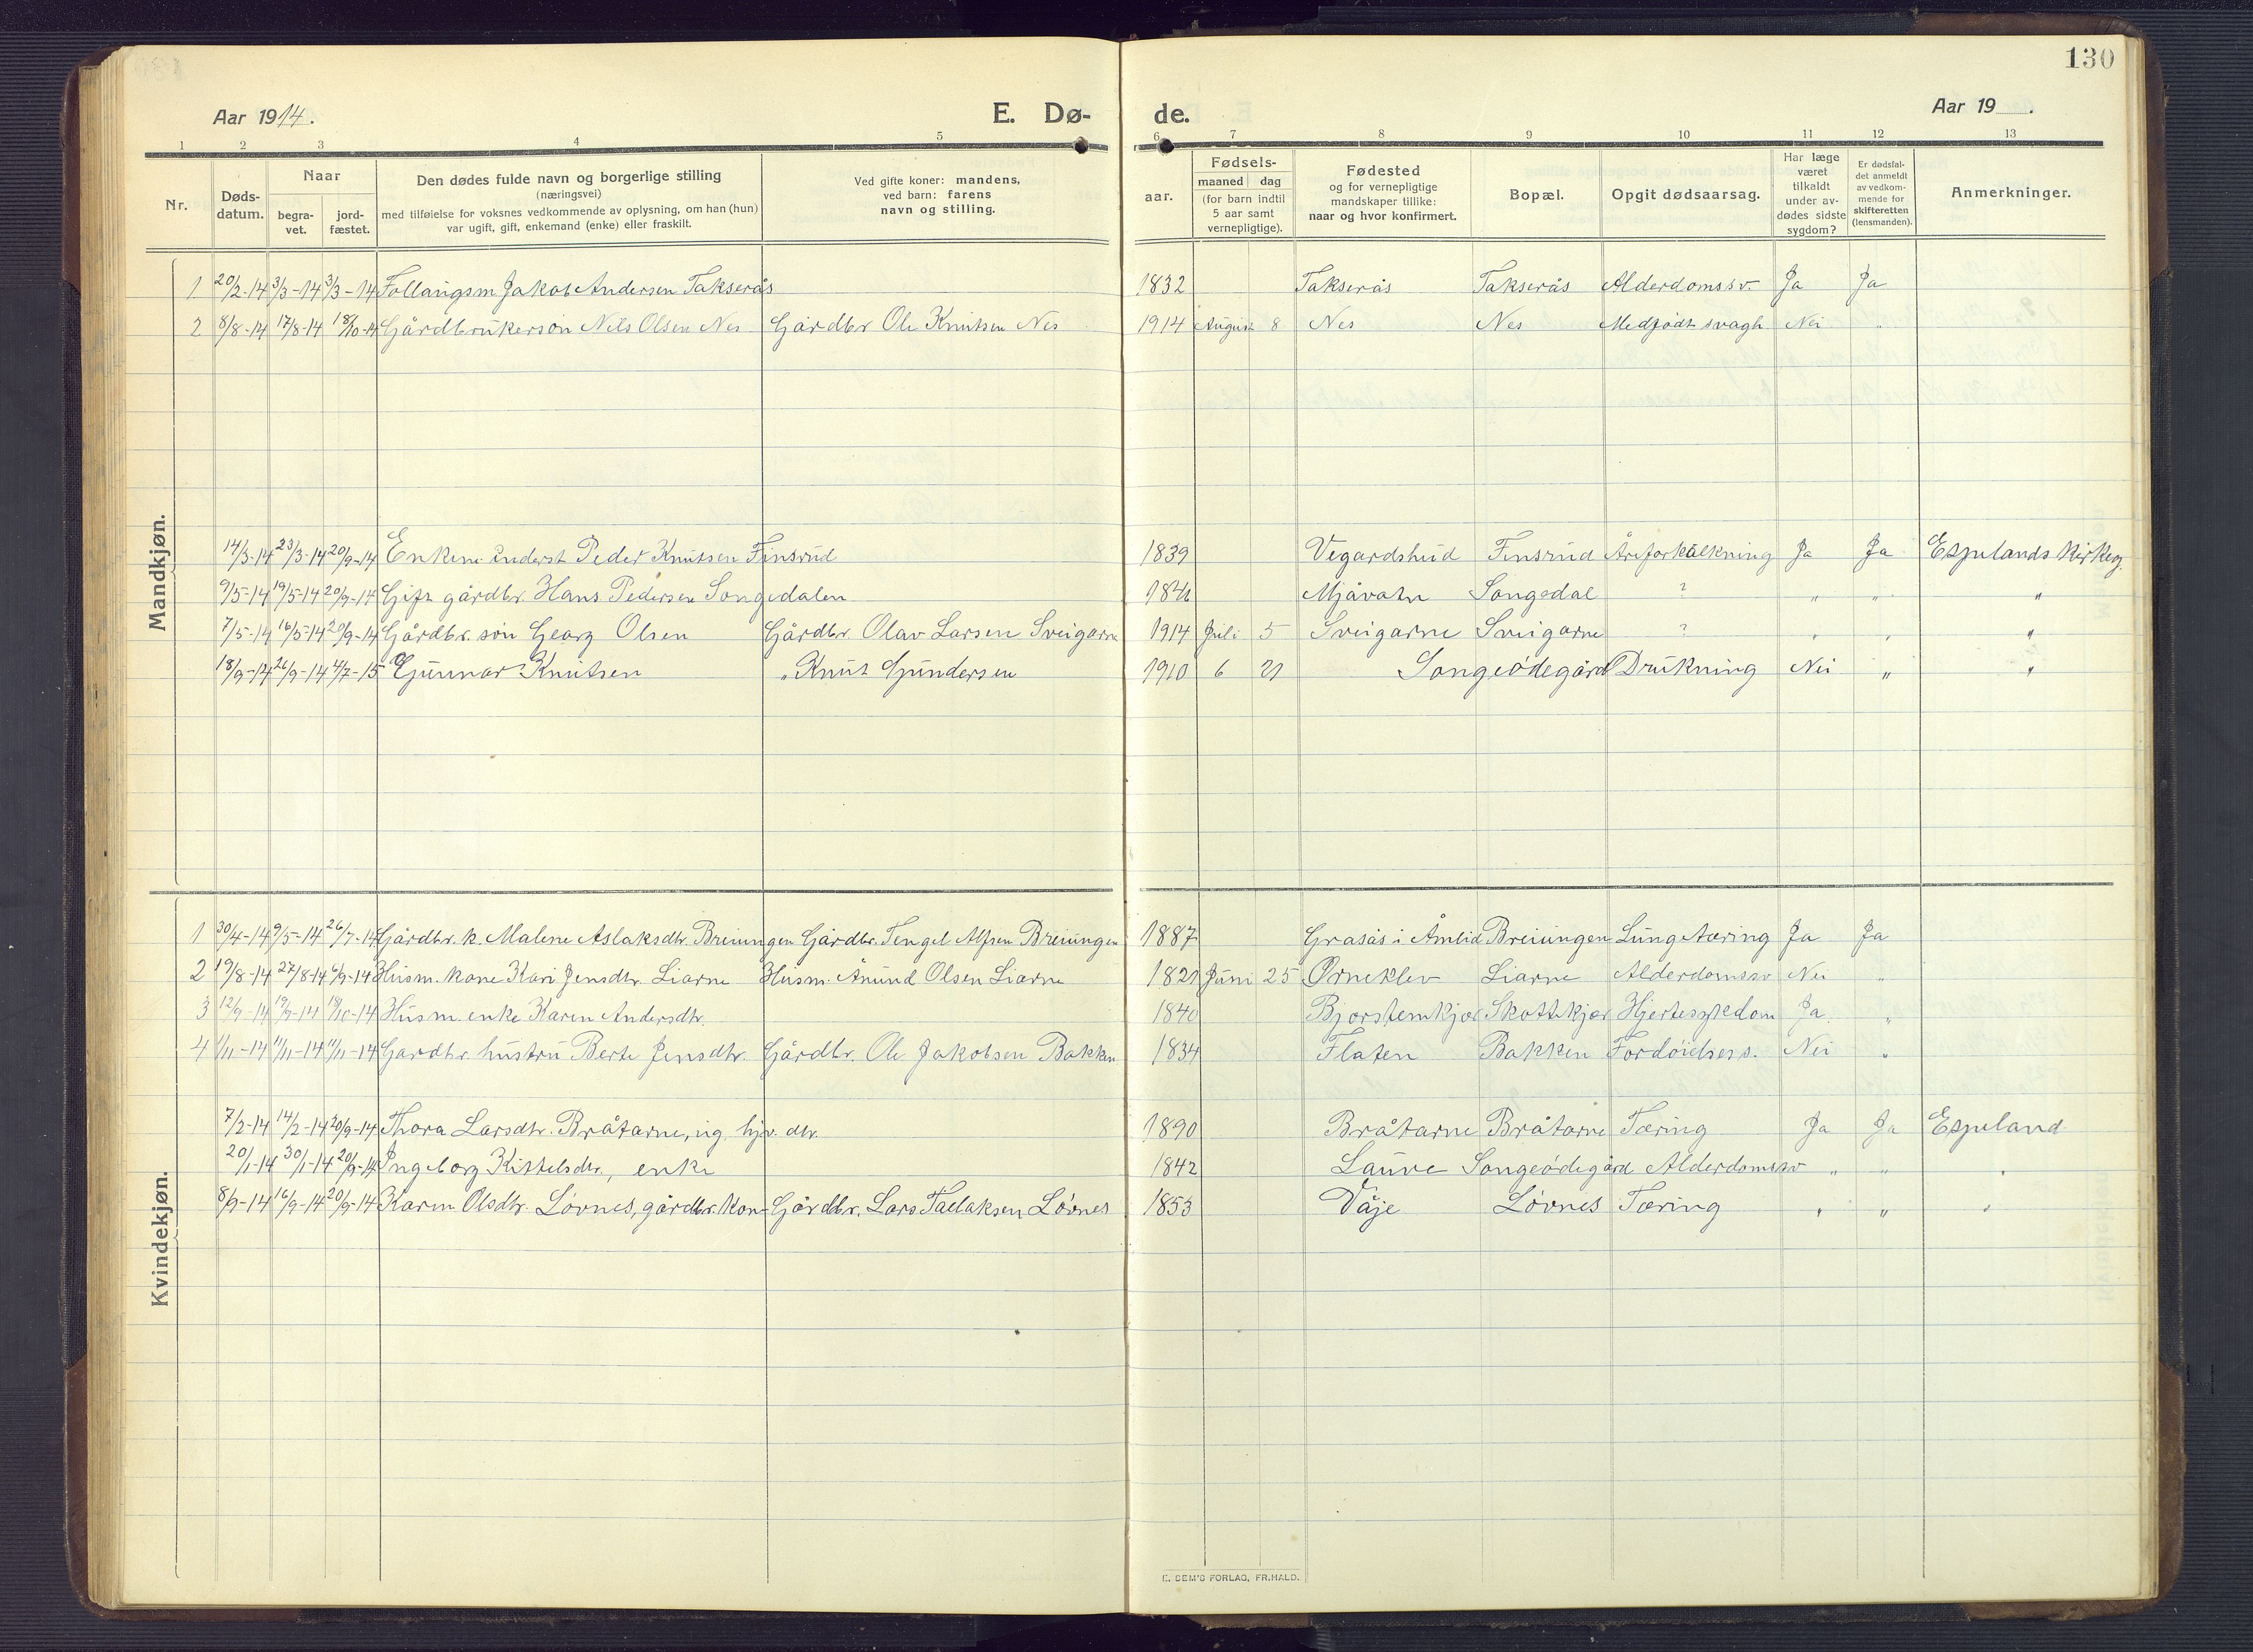 130
Aar 1914. E. Dø- de. Aar 19 .
1 2 3 4 5 6 7 8 9 10 11 12 13
Nr.
Døds-
datum.
Naar
begra-
vet.
jord-
fæstet.
Den dødes fulde navn og borgerlige stilling
(næringsvei)
med tilføielse for voksnes vedkommende av oplysning, om han (hun)
var ugift, gift, enkemand (enke) eller fraskilt.
Ved gifte koner: mandens,
ved barn: farens
navn og stilling.
aar.
Fødsels-
maaned dag
(for barn indtil
5 aar samt
vernepligtige).
Fødested
og for vernepligtige
mandskaper tillike:
naar og hvor konfirmert.
Bopæl.
Opgit dødsaarsag.
Har læge
været
tilkaldt
under av-
dødes sidste
sygdom?
Er dødsfal-
det anmeldt
av vedkom-
mende for
skifteretten
(lensmanden).
Anmerkninger.
Mandkjøn.
1 20/2-14 3/3-14 3/3-14 Jakob Andersen Takserås 1832 Takserås Takserås Alderdomssv. Ja Ja
2 8/8-14 17/8-14 18/10-14 Gårdbrukersøn Nils Olsen Nes Gårdbr Ole Knutsen Nes 1914 August 8 Nes Nes Medfødt svagh Nei "
14/3-14 23/3-14 20/9-14 Enkem. inderst Peder Knutsen Finsrud 1839 Vegardshud Finsrud Åreforkalkning Ja Ja Espelands Kirkeg.
9/5-14 19/5-14 20/9-14 Gift gårdbr. Hans Pedersen Songedalen Mjåvatn Songedal ? " " "
7/5-14 16/5-14 20/9-14 Gårdbr. søn Georg Olsen Gårdbr. Olav Larsen Sveigarne 1914 Juli 5 Sveigarne Sveigarne ? " " "
18/9-14 26/9-14 4/7-15 Gunnar Knutsen " Knut Gundersen 1910 6 21 Songeødegård Drukning Nei " "
Kvindekjøn.
1 30/4-14 9/5-14 26/7-14 Gårdbr. k. Malene Aslaksdtr. Breiungen Gårdbr. Tengel Alfsen Breiungen 1887 Grasås i Åmlid Breiungen Lungetæring Ja Ja
2 19/8-14 27/8-14 6/9-14 Husm. kone Kari Jensdtr. Liarne Husm. Ånund Olsen Liarne 1821 Juni 25 Ørneklev Liarne Alderdomssv Nei "
3 12/9-14 19/9-14 18/10-14 Husm. enke Karen Andersdtr. 1840 Bjorstemkjær Skottkjær Hjertesykdom Ja "
4 1/11-14 11/11-14 11/11-14 Gardbr. hustru Berte Jensdtr. Gårdbr. Ole Jakobsen Bakken 1834 Flaten Bakken Fordøielses s. Nei "
7/2-14 14/2-14 20/9-14 Thora Larsdtr. Bråtarne, ug. hjv. dtr. 1890 Bråtarne Bråtarne Tæring Ja Ja Espeland
20/1-14 30/1-14 20/9-14 Ingeborg Kittelsdtr., enke 1842 Lauve Songeødegård Alderdomssv " " "
8/9-14 16/9-14 20/9-14 Karen Olsdtr. Løvnes, gårdbr. kone Gårdbr. Lars Taelaksen Løvnes 1853 Våje Løvnes Tæring " " "
E. SEM'S FORLAG, FR.HALD.